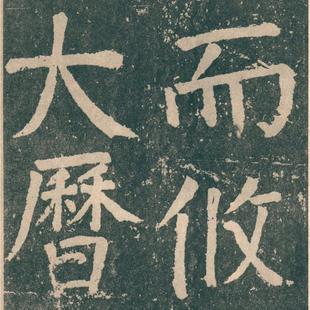 而攸
大曆